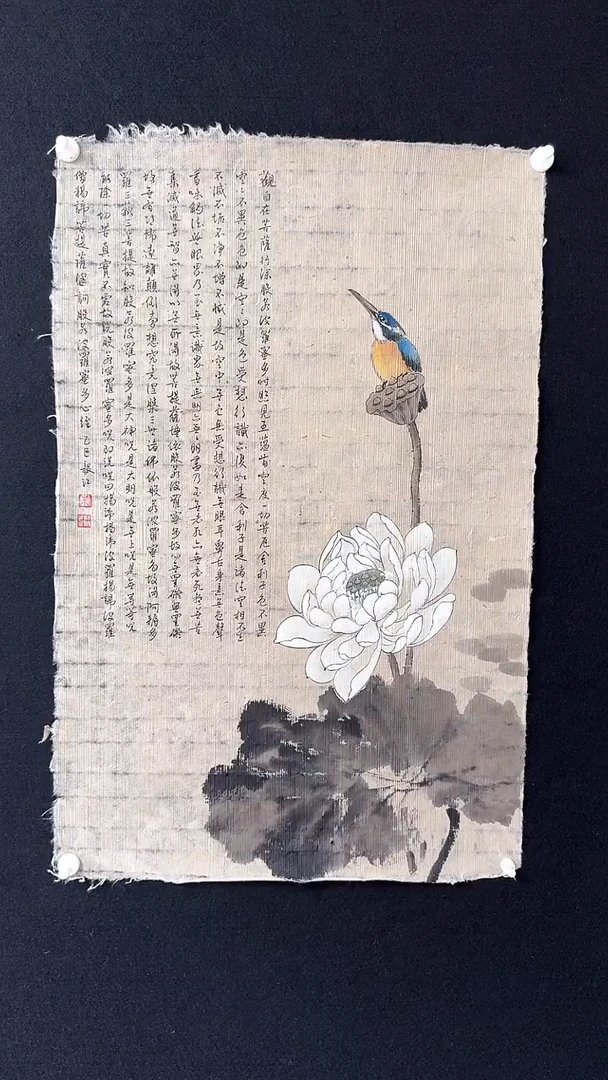 觀自在菩薩行深般若波羅蜜多時照見五蘊皆空度一切苦厄舍利子色不異
空〻不異色色即是空〻即是色受想行識亦復如是舍利子是諸法空相不生
不滅不垢不淨不增不減是故空中無色無受想行識無眼耳鼻舌身意無色聲
香味觸法無眼界乃至無意識界無無明亦無無明盡乃至無老死亦無老死盡無苦
集滅道無智亦無得以無所得故菩提薩埵依般若波羅蜜多故心無罣礙無罣礙
故無有恐怖遠離顛倒夢想究竟涅槃三世諸佛依般若波羅蜜多故得阿耨多
羅三藐三菩提故知般若波羅蜜多是大神咒是大明咒是無上咒是無等等咒
能除一切苦真實不虛故說般若波羅蜜多咒即說咒曰揭諦揭諦波羅揭諦波羅
僧揭諦菩提薩婆訶般若波羅蜜多心經 乙巳